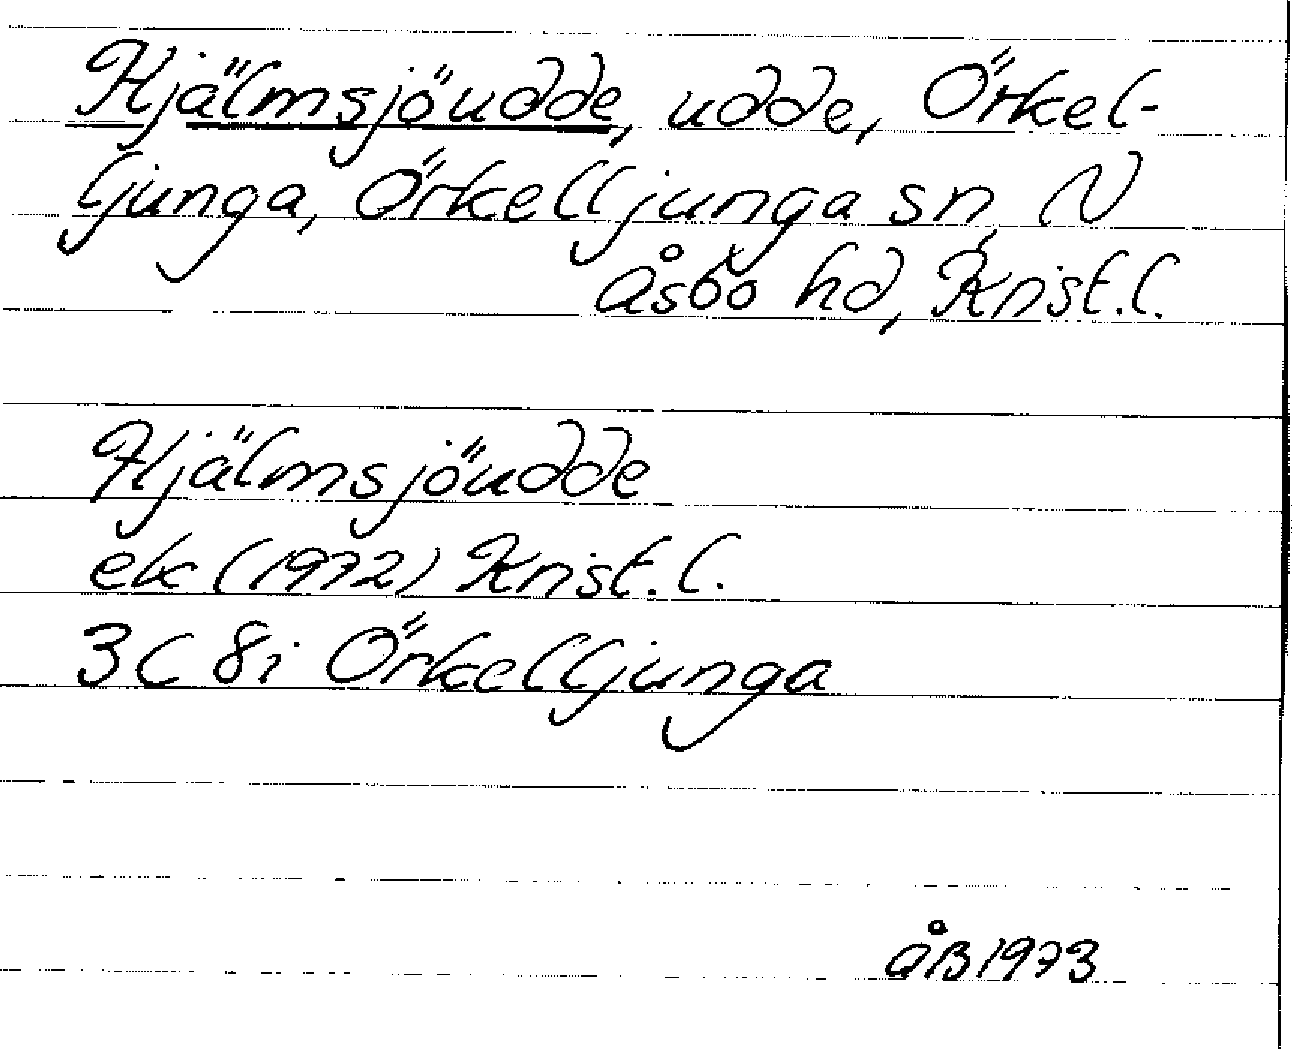 Hjälmsjöudde, udde, Örkel-
ljunga, Örkelljunga sn, N
Åsbo hd, Krist.l.
Hjälmsjöudde
ek (1972) Krist.l.
3C 8i Örkelljunga
ÅB 1973